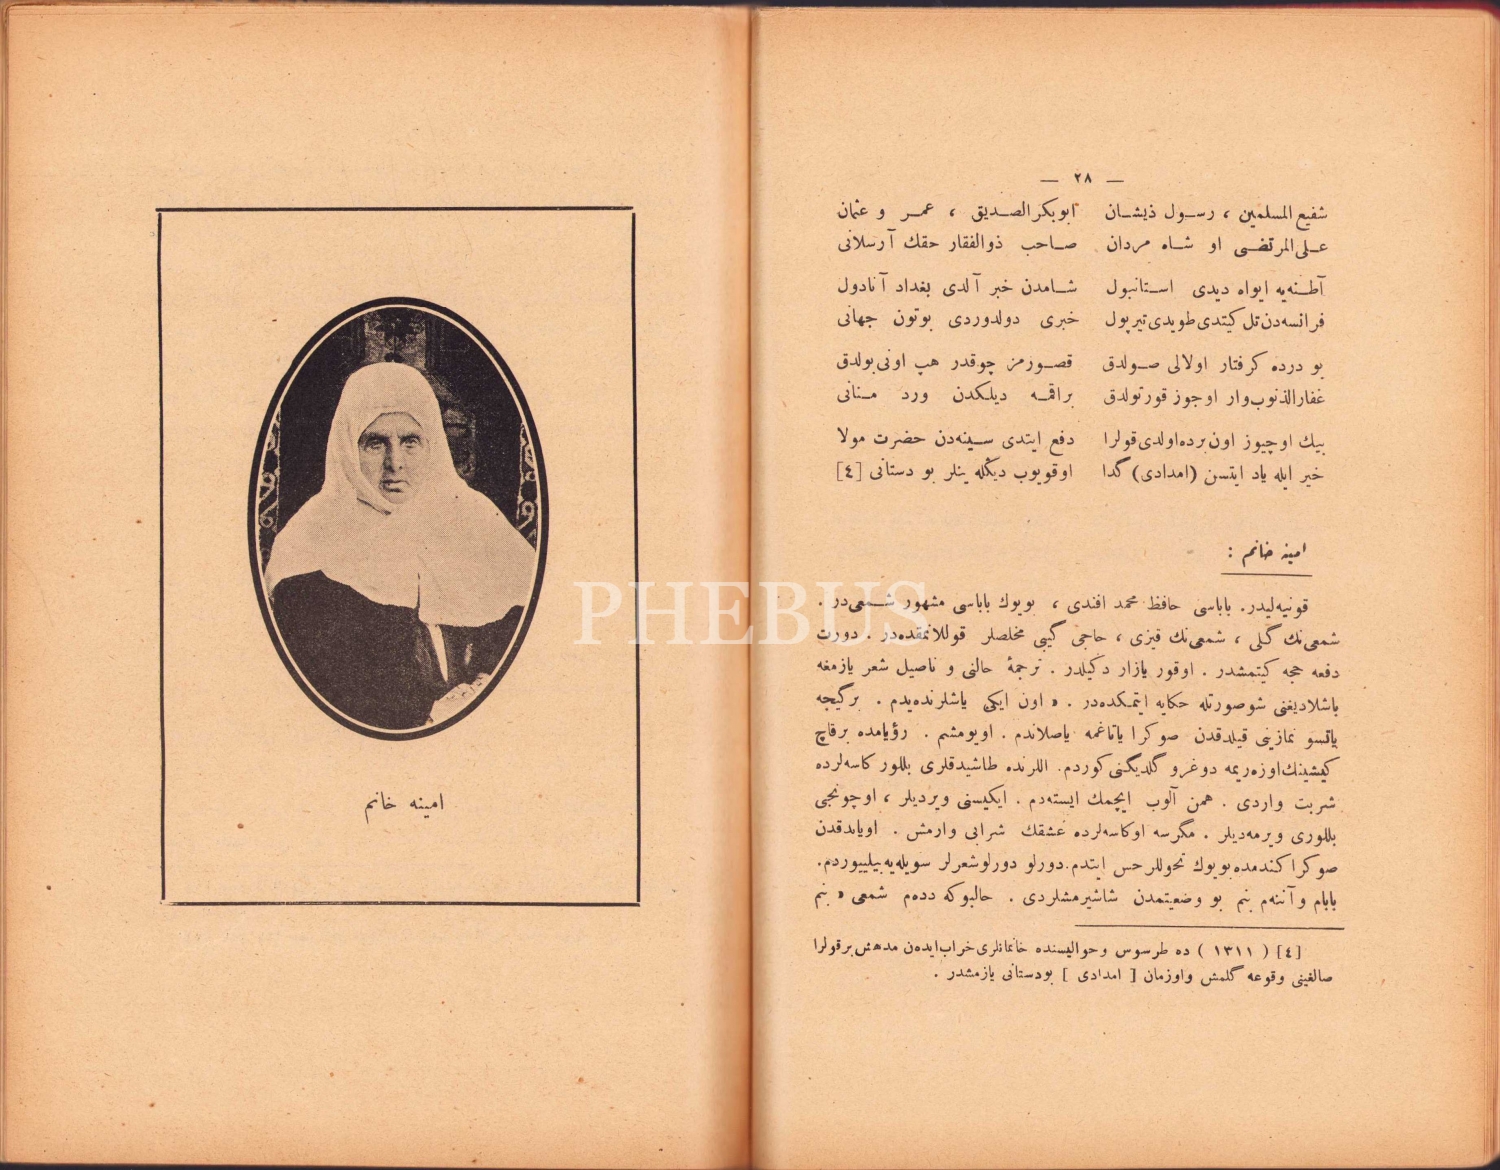 — ٢٨ —
شفیع المسلمین ، رسول ذیشان ابوبکر الصدیق ، عمر و عثمان
علی المرتضی او شاه مردان صاحب ذوالفقار حقك آرسلانی
آطنه‌یه ایواه دیدی استانبول شامدن خبر آلدی بغداد آنادول
فرانسه‌دن تل کیتدی طویدی تیرپول خبری دولدوردی بوتون جهانی
بو درده کرفتار اولالی صولدق قصورمز چوقدر هپ اونی بولدق
غفار الذنوب وار اوجوز قورتولدق براقمه دیلکدن ورد منانی
بیك اوچیوز اون برده اولدی قولرا دفع ایتدی سینه‌دن حضرت مولا
خیر ایله یاد ایتسن (امدادی) گدا اوقویوب دیڭله ینلر بو دستانی [٤]
امینه خانم :
قونیه‌لیدر. باباسی حافظ محمد افندی ، بویوك باباسی مشهور شمعی‌در .
شمعی‌نك گلی ، شمعی‌نك قیزی ، حاجی گیبی مخلصلر قوللانمقده‌در . دورت
دفعه حجه کیتمشدر . اوقور یازار دکیلدر . ترجمهٔ حالنی و ناصیل شعر یازمغه
باشلادیغنی شو صورتله حکایه ایتمکده‌در . « اون ایکی یاشلرنده‌یدم . برگیجه
یاتسو نمازینی قیلدقدن صوکرا یاتاغمه یاصلاندم . اویومشم . رؤیامده برقاچ
کیشینك اوزه‌ریمه دوغرو گلدیگنی کوردم. اللرنده طاشیدقلری بللور کاسه‌لرده
شربت واردی . همن آلوب ایچمك ایسته‌دم . ایکیسنی ویردیلر ، اوچونجی
بللوری ویرمه‌دیلر . مگرسه او کاسه‌لرده عشقك شرابی وارمش . اویاندقدن
صوکرا کندمده بویوك تحوللر حس ایتدم. دورلو دورلو شعرلر سویله‌یه بیلییوردم.
بابام و آننه‌م بنم بو وضعیتمدن شاشیرمشلردی . حالبوکه دده‌م شمعی « بنم
[٤] ( ١٣١١ ) ده طرسوس و حوالیسنده خانمانلری خراب ایده‌ن مدهش برقولرا
صالغینی وقوعه گلمش و اوزمان [ امدادی ] بودستانی یازمشدر .
امینه خانم
PHEBUS